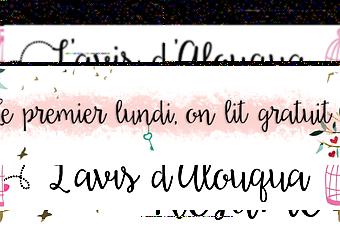 L'avis d'Alouqua
e premier lundi, on lit gratuit
L'avis d'Alouqua